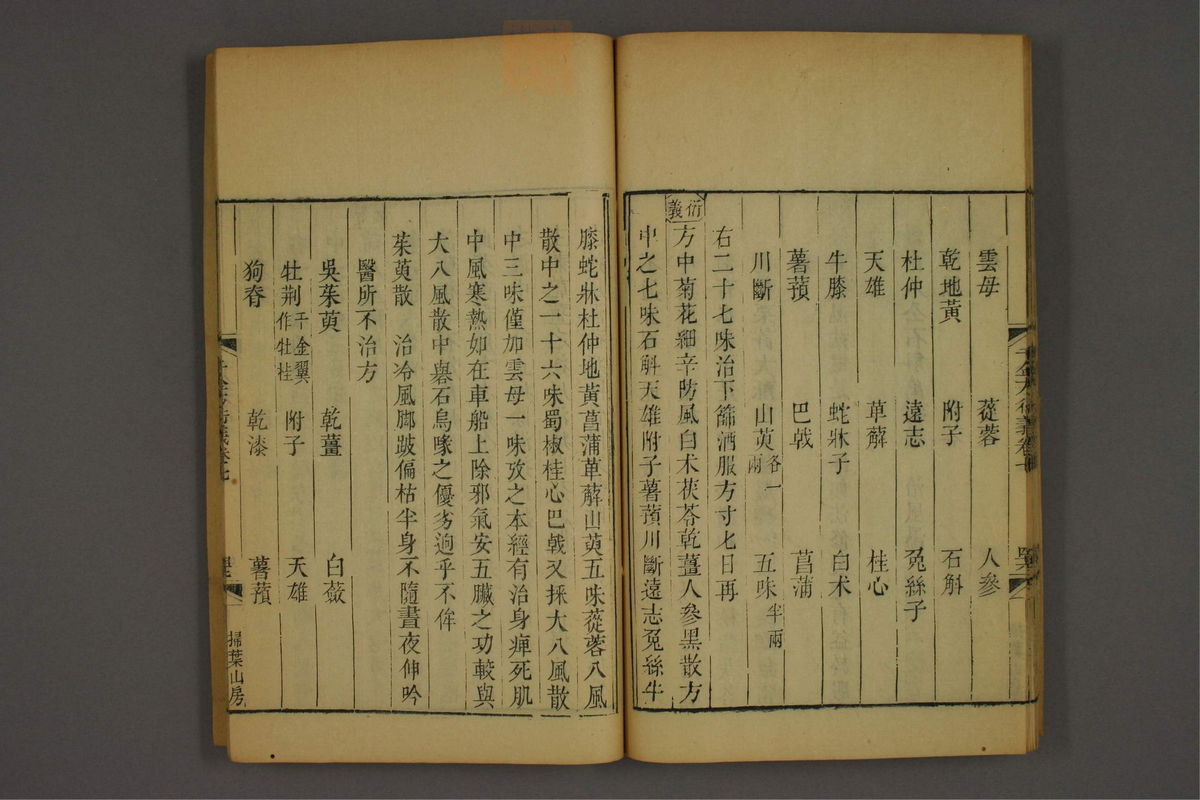 雲母 蓯蓉 人參
乾地黃 附子 石斛
杜仲 遠志 兔絲子
天雄 萆薢 桂心
牛膝 蛇牀子 白术
薯蕷 巴戟 菖蒲
川斷 山萸各一兩 五味半兩
右二十七味治下篩酒服方寸七日再
衍義
方中菊花細辛防風白术茯苓乾薑人參黑散方
中之七味石斛天雄附子薯蕷川斷遠志兔絲牛
膝蛇牀杜仲地黃菖蒲萆薢山萸五味蓯蓉八風
散中之一十六味蜀椒桂心巴戟又採大八風散
中三味僅加雲母一味攷之本經有治身痺死肌
中風寒熱如在車船上除邪氣安五臟之功較與
大八風散中礜石烏喙之優劣逈乎不侔
茱萸散 治冷風腳跛偏枯半身不隨晝夜伸吟
醫所不治方
吳茱萸 乾薑 白蘞
牡荆千金翼作牡桂 附子 天雄
狗脊 乾漆 薯蕷
掃葉山房